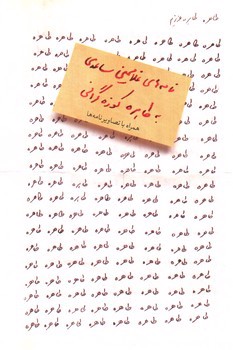 طاهره، طاهره عزیزم
طاهره طاهره طاهره طاهره طاهره طاهره طاهره طاهره
نامه‌های غلامحسین ساعدی
به طاهره کوزه‌گرانی
همراه با تصاویر نامه‌ها
طاهره طاهره طاهره طاهره طاهره طاهره طاهره طاهره
طاهره طاهره طاهره طاهره طاهره طاهره طاهره طاهره
طاهره طاهره طاهره طاهره طاهره طاهره طاهره طاهره
طاهره طاهره طاهره طاهره طاهره طاهره طاهره طاهره
طاهره طاهره طاهره طاهره طاهره طاهره طاهره طاهره
طاهره طاهره طاهره طاهره طاهره طاهره طاهره طاهره
طاهره طاهره طاهره طاهره طاهره طاهره طاهره طاهره
طاهره طاهره طاهره طاهره طاهره طاهره طاهره طاهره
طاهره طاهره طاهره طاهره طاهره طاهره طاهره طاهره
طاهره طاهره طاهره طاهره طاهره طاهره طاهره طاهره